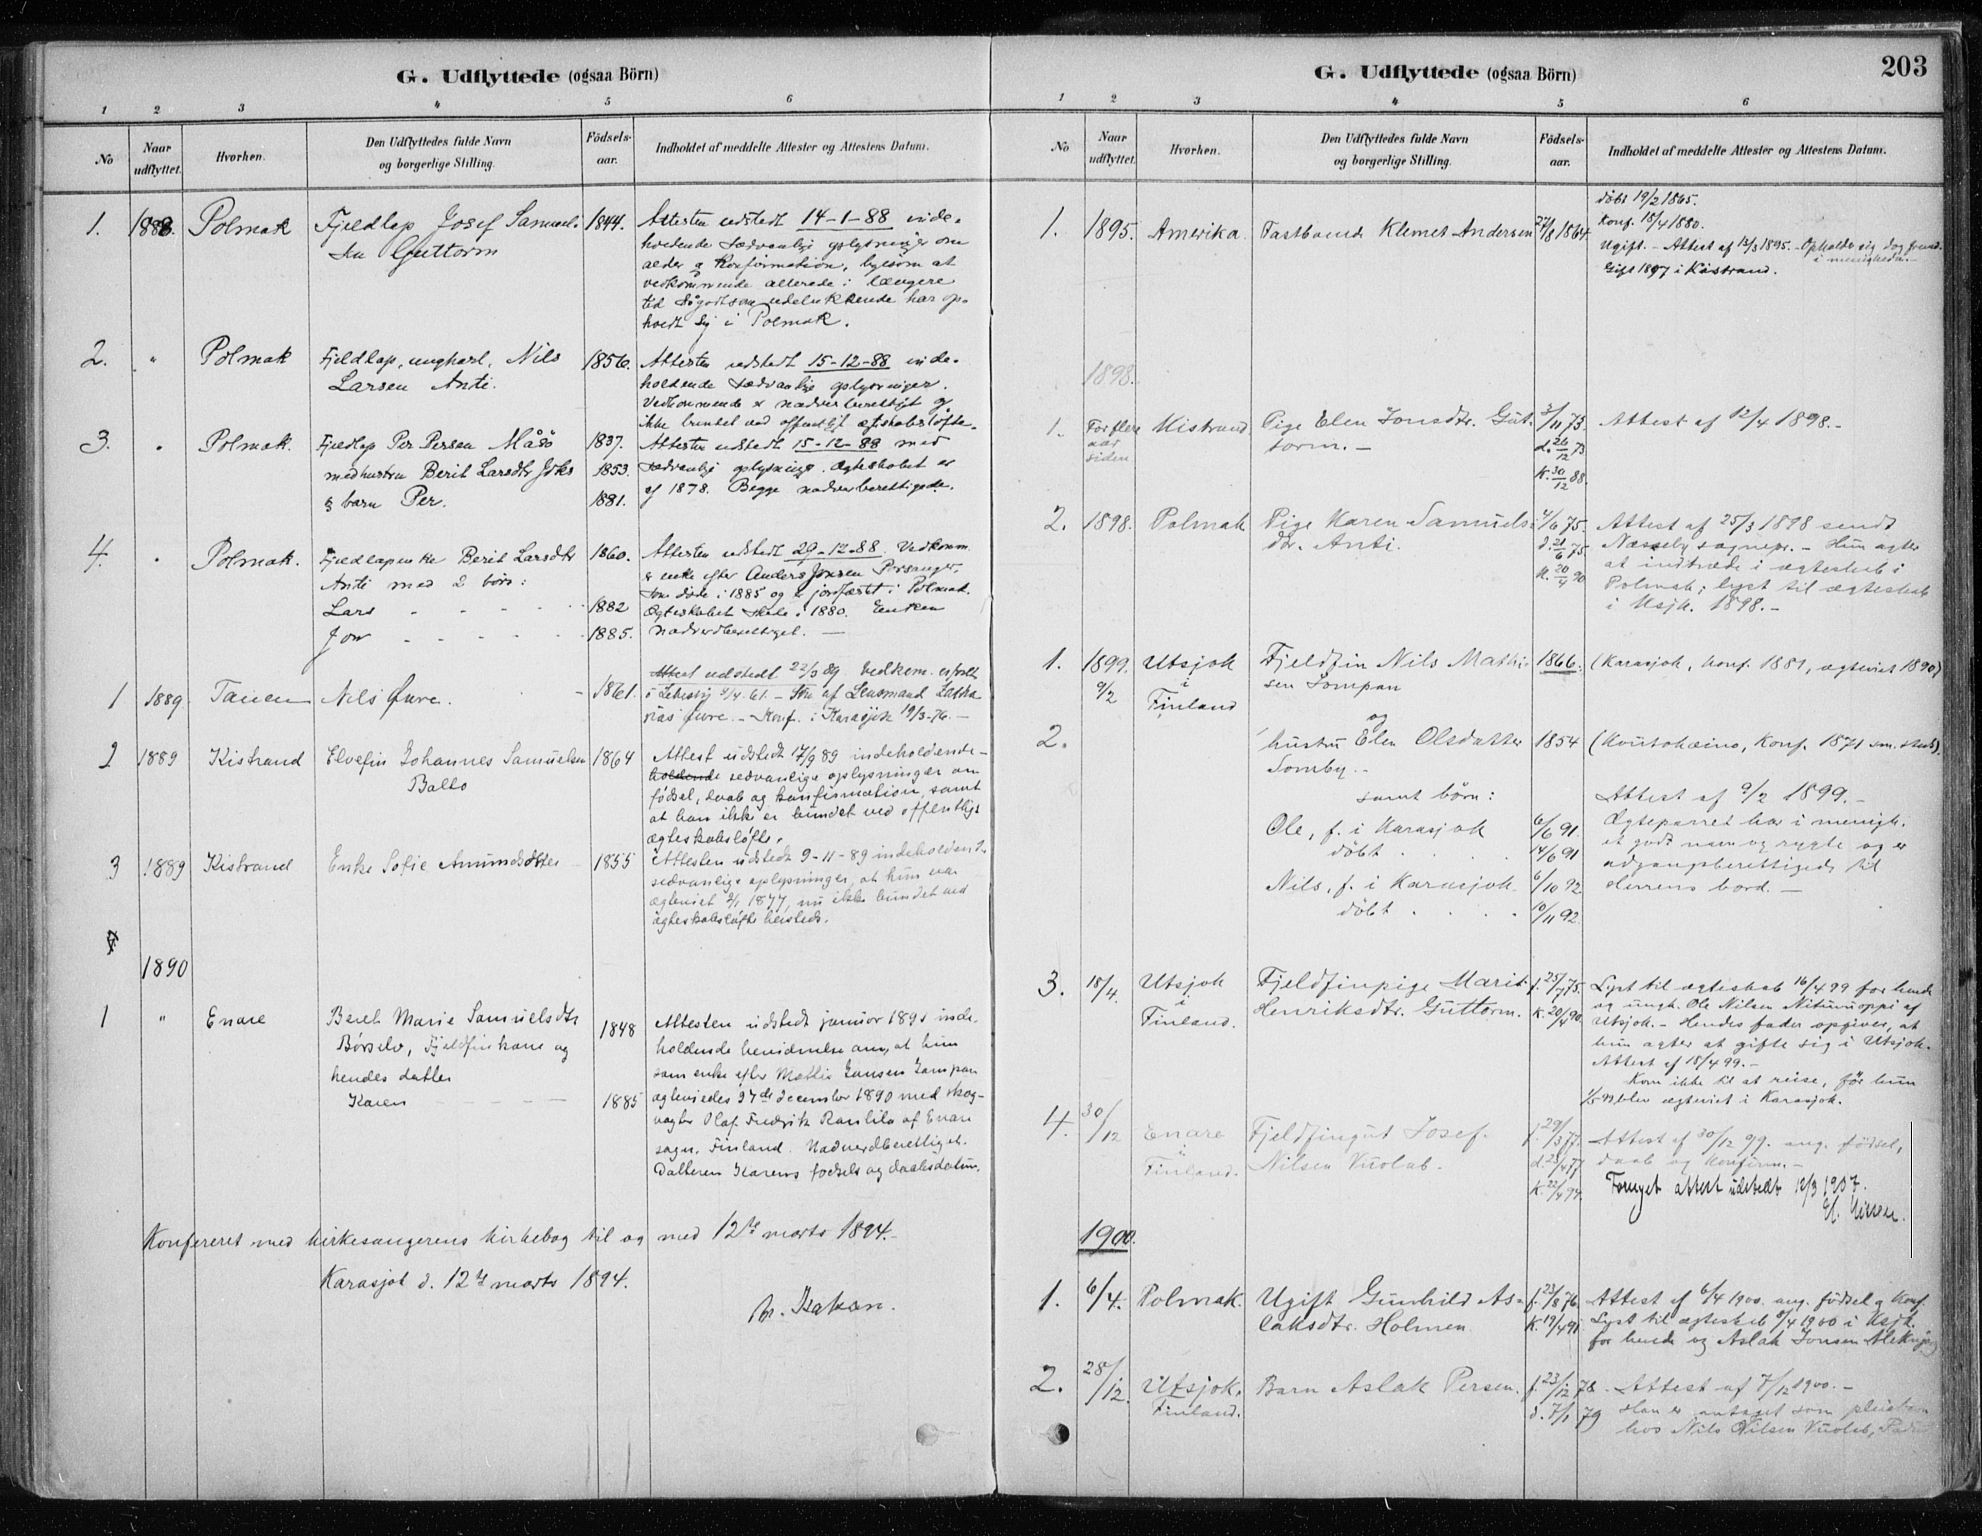 G. Udflyttede (ogsaa Börn)
1 2 3 4 5 6
No
Naar udflyttet.
Hvorhen.
Den Udflyttedes fulde Navn
og borgerlige Stilling.
Födsels-
aar.
Indholdet af meddelte Attester og Attestens Datum.
1. 1888. Polmak Fjeldlap Josef Samuel- 1844. Attesten udstedt 14-1-88 inde-
sen Guttorm
holdende sædvanlige oplysninger om
alder og konfirmation, ligesom at
vedkommende allerede i længere
tid sågodtsom udelukkende har op-
holdt sig i Polmak.
2. " Polmak Fjeldlap, ungkarl, Nils 1856. Attesten udstedt 15-12-88 inde-
Larsen Anti.
holdende sædvanlige oplysninger.
Vedkommende er nadverberettiget og
ikke bundet ved offentligt ægteskabsløfte.
3. " Polmak. Fjeldlap Per Persen Måsö 1837. Attesten udstedt 15-12-88 med
med hustru Berit Larsdtr 1853. sædvanlige oplysninger. Ægteskabet er
& barn Per. 1881. af 1878. Begge nadverberettigede.
4. " Polmak. Fjeldlapenke Berit Larsdtr 1860. Attesten udstedt 29-12-88. Vedkomm.
Anti med 2 börn:
er enke efter Anders Jonsen Porsanger,
som døde i 1885 og er jordfæstet i Polmak.
Lars - - - - 1882 Ægteskabet skede i 1880. Enken
Jon - - - - 1885. nadverdberettiget. —
1 1889. Tanen Nils Øvre. - 1861. Attest udstedt 22/3 89. Vedkom. er født
i Lebesby 9/4. 61. - Søn af Lensmand
Øvre. - Konf. i Karasjok 19/3-76. -
2 1889 Kistrand Elvefin Johannes Samuelsen 1864 Attest udstedt 17/9 89 indeholdende-
Balto
holdende sedvanlige oplysninger om
fødsel, daab og konfirmation, samt
at han ikke er bundet ved offentligt
ægteskabsløfte.
3 1889 Kistrand Enke Sofie Amundsdatter 1855 Attesten udstedt 9-11-89 indeholdende
sedvanlige oplysninger, at hun var
ægteviet 1877, nu ikke bundet ved
ægteskabsløfte heisteds.
1890
1 " Enare Bereth Marie Samuelsdtr 1848 Attesten udstedt januar 1891 inde-
Børselv, Fjeldfinkone og
holdende bevidnelse om, at hun
hendes datter
som enke efter Mathis Jonsen Sompan
Karen - - - - 1885 ægteviedes 27de december 1890 med skog-
vogter Olaf Fredrik af Enare
sogn, Finland. Nadverdberettiget.
Datteren Karens fødsels og daabsdatum.
Konfereret med kirkesangerens kirkebog til og med 12te marts 1894.-
Karasjok d. 12te marts 1894.
G. Udflyttede (ogsaa Börn)
203
1 2 3 4 5 6
No
Naar
udflyttet.
Hvorhen.
Den Udflyttedes fulde Navn
og borgerlige Stilling.
Födsels-
aar.
Indholdet af meddelte Attester og Attestens Datum.
döbt 19/2 1865.
Konf. 18/4 1880.
1. 1895. Amerika. Fastboende Klemet Andersen 22/8 1864 Ugift. - Attest af 13/3 1895. - Opholder sig dog fremd.
i menigheden.-
Gift 1897 i Kistrand.
1898.
1. For flere Kistrand Pige Elen Jonsdtr. Gut- 3/11 73. Attest af 12/4 1898.-
aar torm. - d. 26/12 73
siden K. 30/12 88.
2. 1898. Polmak Pige Karen Samuels- 4/6 75. Attest af 25/3 1898 sendt
dtr. Anti. d. 21/6 75 Næsseby sognepr. - Hun agter
K. 20/4 90 at indtræde i ægteskab i
Polmak; lyst til ægteskab
i Ksjk. 1898.-
1. 1899. Utsjok Fjeldfin Nils Mathi- 1866. (Karasjok, Konf. 1881, ægteviet 1890)
9/2 i sen Sompan
Finland
og
2. hustru Elen Olsdatter 1854 (Koutokæino, Konf. 1871 sm. steds).
Somby.-
samt börn: Attest af 9/2 1899.-
Ole, f. i Karasjok 6/6 91. Ægteparret har i menigh.
döbt . . . 14/6 91 et godt navn og rygte og er
adgangsberettigede til
Nils, f. i Karasjok. 6/10 92 Herrens bord. -
döbt . . . . 10/11 92.
3. 18/4. Utsjok Fjeldfinpige Marit f. 25/7 75. Lyst til ægteskab 16/4 99 for hende
i Henriksdtr. Guttorm. K. 20/4 90. og ungk. Ole Nilsen af
Finland. Utsjok. - Hendes fader opgiver, at
hun agter at gifte sig i Utsjok.
Attest af 18/4 99.-
Kom ikke til at reise, för hun
blev ægteviet i Karasjok.
4. 30/12 Enare Fjeldfingut Josef f. 29/3 77. Attest af 30/12 99. ang. fødsel,
i Nilsen Vuolab. d. 23/4 77 daab og konfirm.-
Finland. K. 22/4 94. Fornyet attest udstedt 12/3 1907.
1900.
1. 6/4. Polmak. Ugift Gunhild As- f. 23/8 76. Attest af 6/4 1900. ang. födsel og konf.
laksdtr. Holmen. K. 19/4 91 Lyst til ægteskab 8/4 1900 i Ksjk.
for hende og Aslak Jonsen
2. 28/12. Utsjok, Barn Aslak Persen. f. 23/12 78. Attest af 7/12 1900.-
Finland. d. 7/1 79 Han er antaget som pleiebarn
hos Nils Nilsen Vuolab,